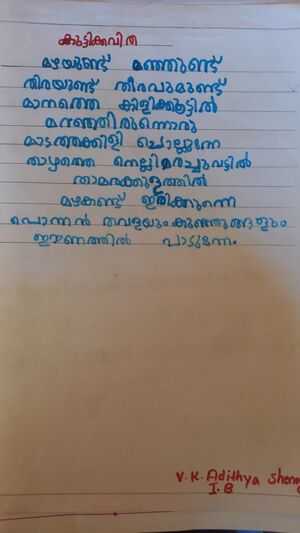 കുട്ടിക്കവിത
മഴയുണ്ട് മഞ്ഞുണ്ട്
തിരയുണ്ട് തീരവുമുണ്ട്
മാനത്തെ കിളിക്കൂട്ടിൽ
മറഞ്ഞിരുന്നൊരു
മാടത്തക്കിളി ചൊല്ലുന്നേ
താഴത്തെ നെല്ലിമരച്ചുവട്ടിൽ
താമരക്കുളത്തിൽ
മഴകണ്ട് ഇരിക്കുന്നെ
പൊന്നൻ തവളയും കുഞ്ഞുങ്ങളും
ഈണത്തിൽ പാടുന്നേ.
V.K. Adithya Shenoy
I.B